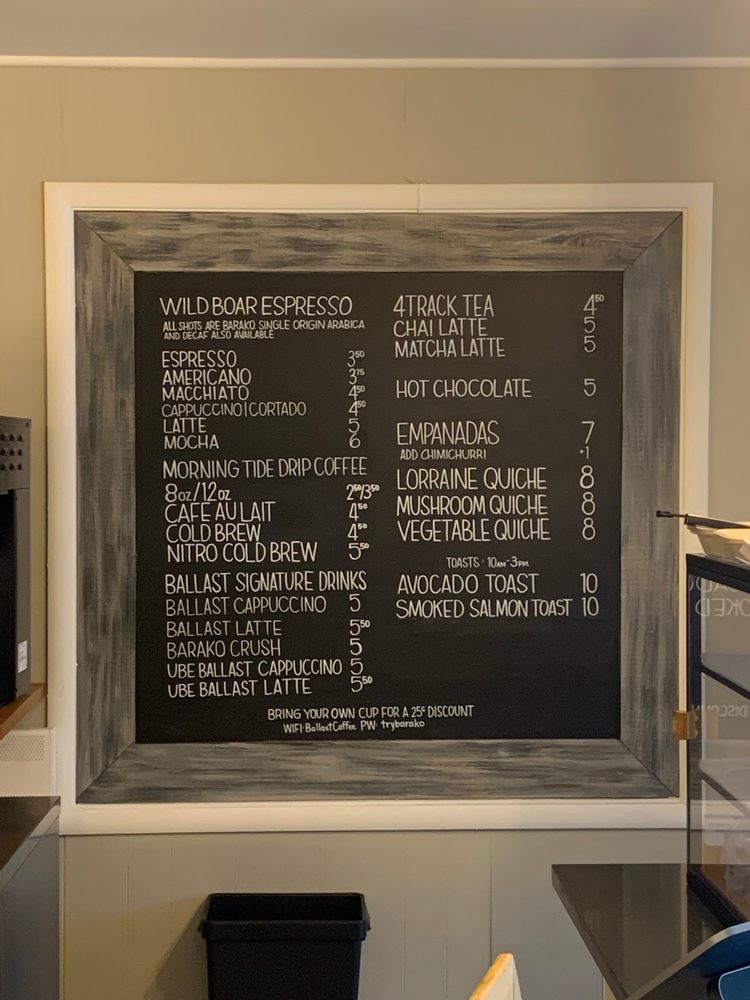 WILD BOAR ESPRESSO
ALL SHOTS ARE BARAKO, SINGLE ORIGIN ARABICA
AND DECAF ALSO AVAILABLE
ESPRESSO 3⁵⁰
AMERICANO 3⁷⁵
MACCHIATO 4⁵⁰
CAPPUCCINO|CORTADO 4⁵⁰
LATTE 5
MOCHA 6
MORNING TIDE DRIP COFFEE
8oz/12oz 2⁵⁰/3⁵⁰
CAFE AU LAIT 4⁵⁰
COLD BREW 4⁵⁰
NITRO COLD BREW 5⁵⁰
BALLAST SIGNATURE DRINKS
BALLAST CAPPUCCINO 5
BALLAST LATTE 5⁵⁰
BARAKO CRUSH 5
UBE BALLAST CAPPUCCINO 5
UBE BALLAST LATTE 5⁵⁰
4TRACK TEA 4⁵⁰
CHAI LATTE 5
MATCHA LATTE 5
HOT CHOCOLATE 5
EMPANADAS 7
ADD CHIMICHURRI +1
LORRAINE QUICHE 8
MUSHROOM QUICHE 8
VEGETABLE QUICHE 8
TOASTS · 10AM-3PM
AVOCADO TOAST 10
SMOKED SALMON TOAST 10
BRING YOUR OWN CUP FOR A 25¢ DISCOUNT
WIFI: BallastCoffee PW: trybarako